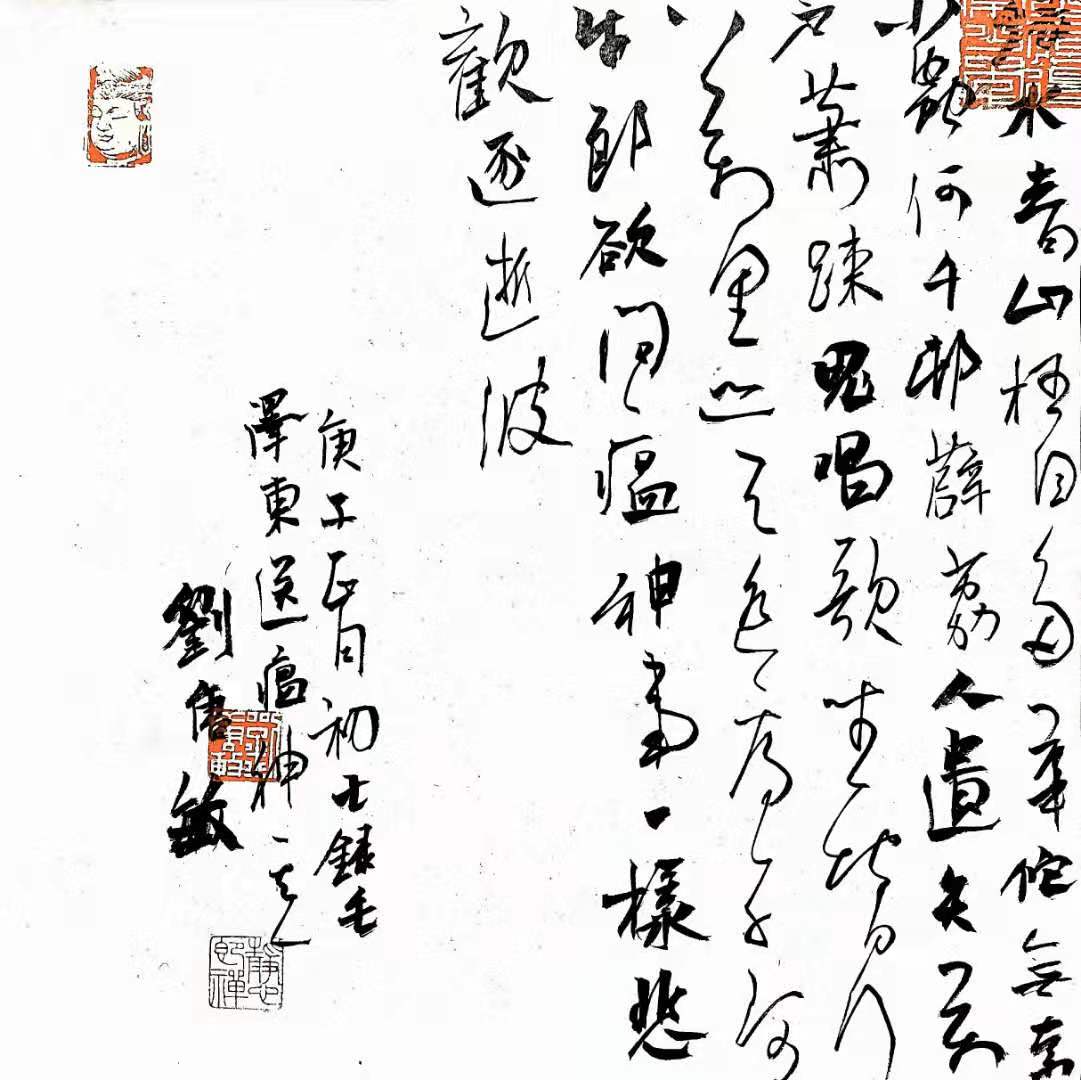 水青山枉自多華佗無奈
小蟲何千邨薜荔人遺矢萬
戶蕭疎鬼唱歌坐地日行
八萬里巡天遙看一千河
牛郎欲問瘟神事一樣悲
歡逐逝波
庚子正月初七錄毛
澤東送瘟神
劉敏
靜心即禪